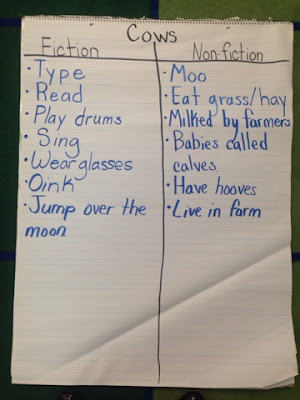 Cows
Fiction
• Type
• Read
• Play drums
• Sing
• Wear glasses
• Oink
• Jump over the
moon
Non-fiction
• Moo
• Eat grass/hay
• Milked by farmers
• Babies called
calves
• Have hooves
• Live in farm